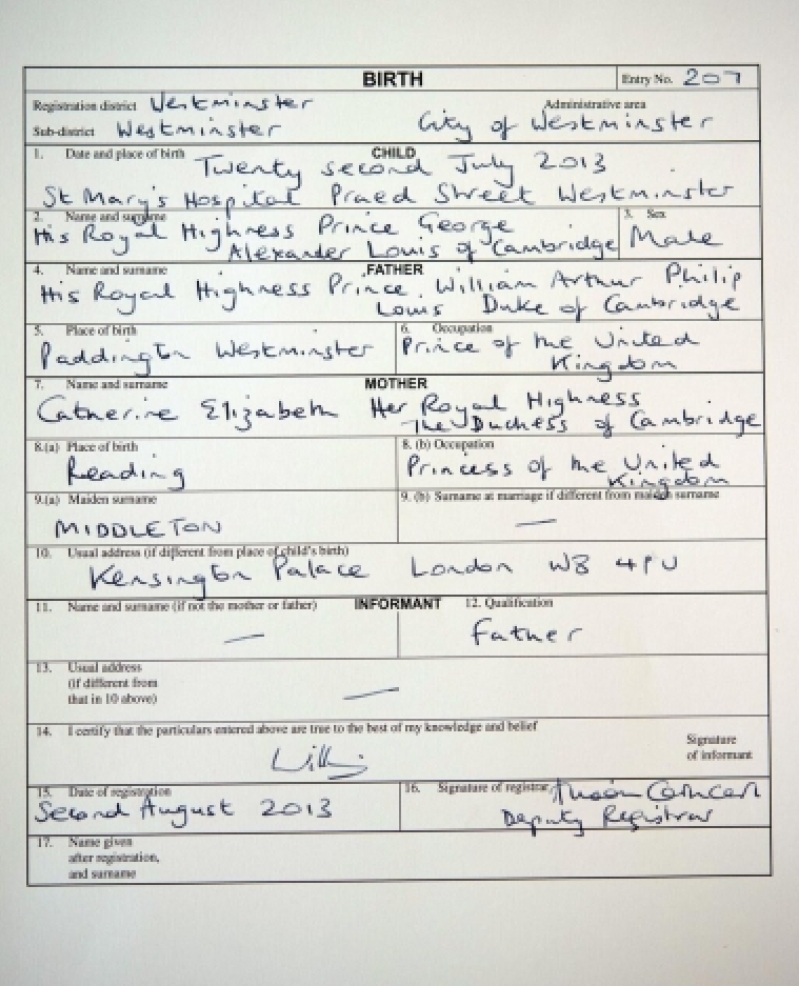 BIRTH Entry No. 207
Registration district Westminster Administrative area
Sub-district Westminster City of Westminster
1. Date and place of birth CHILD
Twenty second July 2013
St Mary's Hospital Praed Street Westminster
2. Name and surname 3. Sex
His Royal Highness Prince George
Alexander Louis of Cambridge Male
4. Name and surname FATHER
His Royal Highness Prince William Arthur Philip
Louis Duke of Cambridge
5. Place of birth 6. Occupation
Paddington Westminster Prince of the United
Kingdom
7. Name and surname MOTHER
Catherine Elizabeth Her Royal Highness
The Duchess of Cambridge
8.(a) Place of birth 8. (b) Occupation
Reading Princess of the United
Kingdom
9.(a) Maiden surname 9. (b) Surname at marriage if different from maiden surname
MIDDLETON —
10. Usual address (if different from place of child's birth)
Kensington Palace London W8 4PU
11. Name and surname (if not the mother or father) INFORMANT 12. Qualification
— Father
13. Usual address
(if different from
that in 10 above) —
14. I certify that the particulars entered above are true to the best of my knowledge and belief
Signature
of informant
15. Date of registration 16. Signature of registrar
Second August 2013
Deputy Registrar
17. Name given
after registration,
and surname